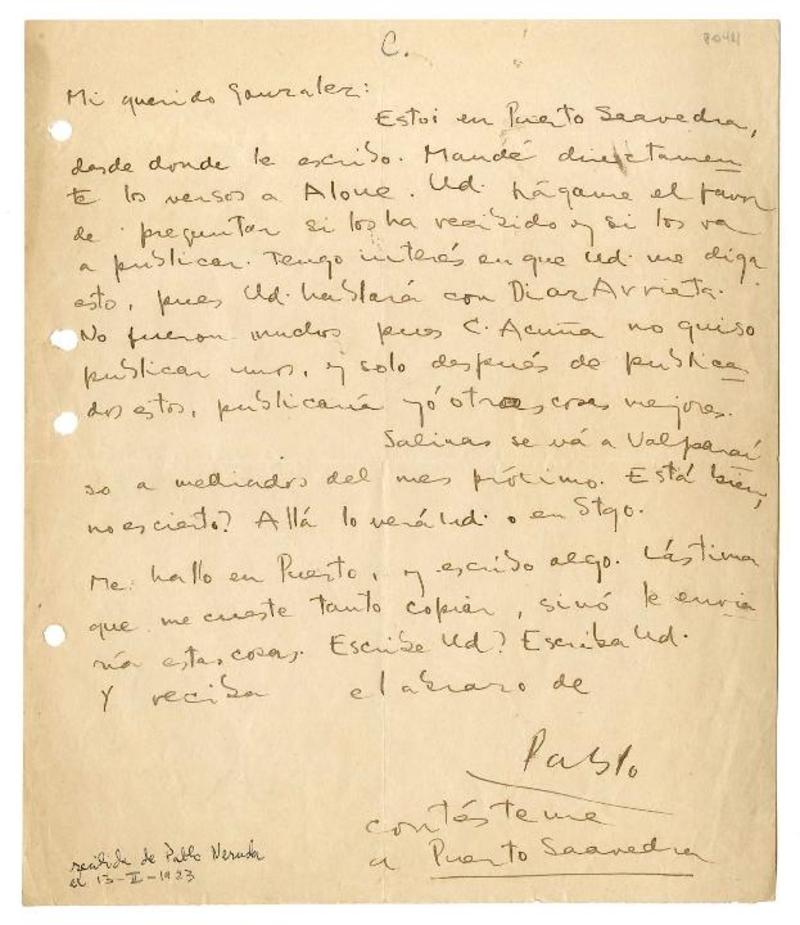 C.
8044
Mi querido Gonzalez:
Estoi en Puerto Saavedra,
desde donde le escribo. Mandé directamen
te los versos a Alone. Ud. hágame el favor
de preguntar si los ha recibido y si los va
a publicar. Tengo interés en que Ud. me diga
esto, pues Ud. hablará con Diaz Arrieta.
No fueron muchos pues C. Acuña no quiso
publicar unos, y solo después de publica
dos estos, publicaría yó otras cosas mejores.
Salinas se vá a Valparaí
so a mediados del mes prócimo. Está bien,
no es cierto? Allá lo verá Ud. o en Stgo.
Me hallo en Puerto, y escribo algo. Lástima
que me cueste tanto copiar, sinó le envia
ría estas cosas. Escribe Ud? Escriba Ud.
Y reciba el abrazo de
Pablo
contésteme
a Puerto Saavedra
recibida de Pablo Neruda
el 13-II-1923